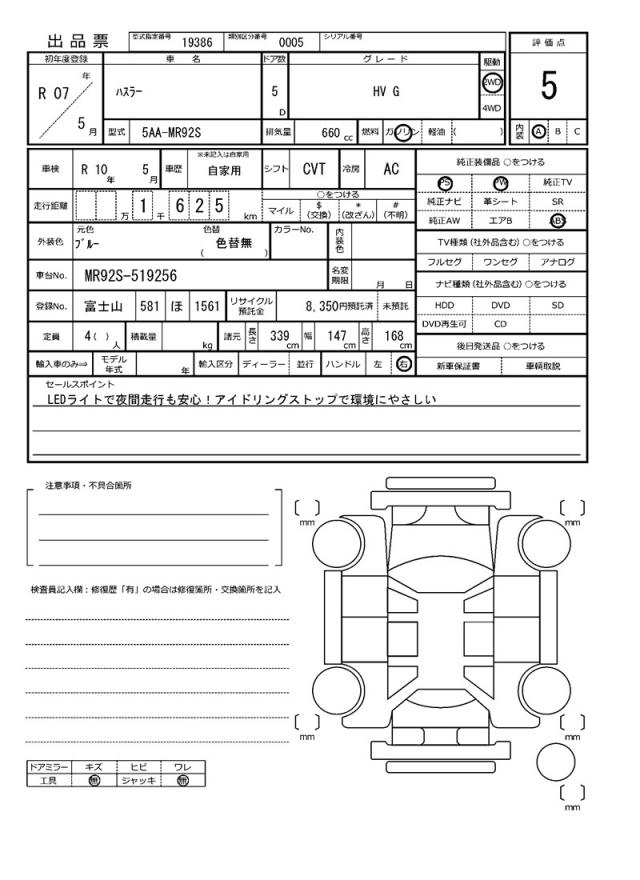 出品票 型式指定番号 19386 類別区分番号 0005 シリアル番号
評価点
5
内装 A B C
初年度登録 車名 ドア数 グレード 駆動
R 07 年 5 月 ハスラー 5 D HV G 2WD 4WD
型式 5AA-MR92S 排気量 660 cc 燃料 ガソリン 軽油 ( )
車検 R 10 年 5 月 車歴 ※未記入は自家用 自家用 シフト CVT 冷房 AC
走行距離 万 1 千 6 2 5 km ○をつける
マイル $(交換) *(改ざん) #(不明)
外装色 元色 ブルー 色替 ( 色替無 ) カラーNo. 内装色
車台No. MR92S-519256 名変期限 月 日
登録No. 富士山 581 ほ 1561 リサイクル預託金 8,350円預託済 未預託
定員 4 ( ) 人 積載量 kg 諸元 長さ 339 cm 幅 147 cm 高さ 168 cm
輸入車のみ⇒ モデル年式 年 輸入区分 ディーラー 並行 ハンドル 左 右
純正装備品 ○をつける
PS PW 純正TV
純正ナビ 革シート SR
純正AW エアB ABS
TV種類 (社外品含む) ○をつける
フルセグ ワンセグ アナログ
ナビ種類 (社外品含む) ○をつける
HDD DVD SD
DVD再生可 CD
後日発送品 ○をつける
新車保証書 車輌取説
セールスポイント
LEDライトで夜間走行も安心！アイドリングストップで環境にやさしい
注意事項・不具合箇所
検査員記入欄：修復歴「有」の場合は修復箇所・交換箇所を記入
ドアミラー キズ ヒビ ワレ
工具 無 ジャッキ 無
mm
mm
mm
mm
mm